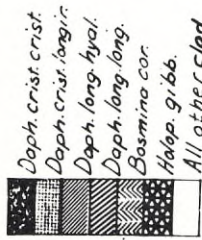 Daph. crist. crist.
Daph. crist. longir.
Daph. long. hyal.
Daph. long. long.
Bosmina cor.
Holop. gibb.
All other clad